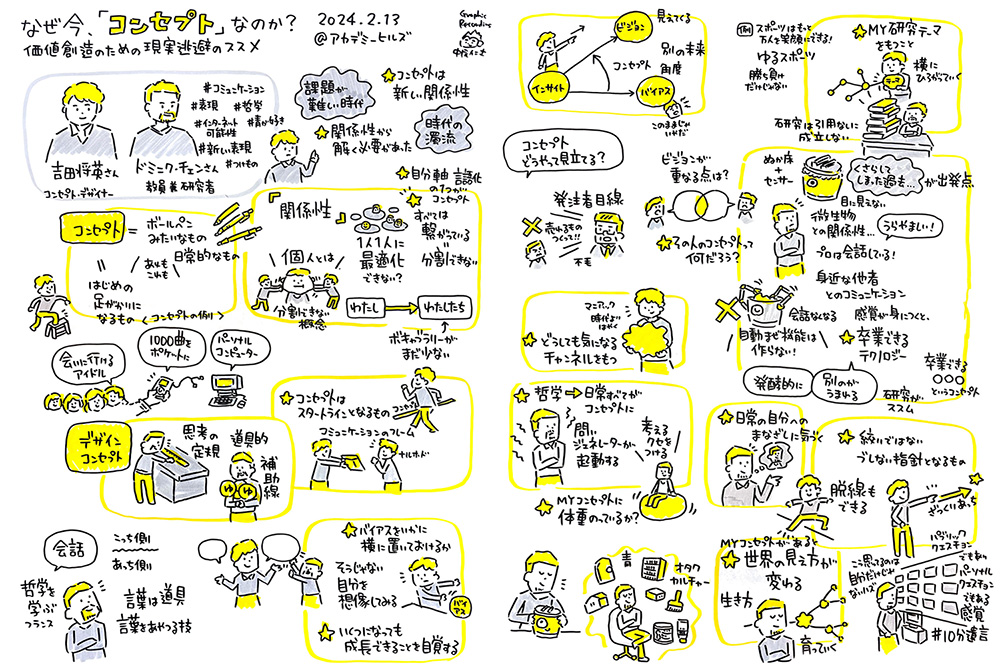 なぜ今、「コンセプト」なのか?
価値創造のための現実逃避のススメ
2024.2.13
@アカデミーヒルズ
Graphic
Recording
吉田将英さん
コンセプト・デザイナー
ドミニク・チェンさん
教員兼研究者
#コミュニケーション
#表現 #哲学
#インターネット
可能性
#青が好き
#新しい表現
#つけもの
課題が
難しい時代
時代の
濁流
★コンセプトは
新しい関係性
★関係性から
解く必要があった
コンセプト
=ボールペン
みたいなもの
日常的なもの
あれも
これも
はじめの
足がかりに
なるもの
<コンセプトの例>
会いに行ける
アイドル
1000曲を
ポケットに
パーソナル
コンピューター
★自分軸 言語化
の1つが
コンセプト
『関係性』
1人1人に
最適化
できない?
すべては
繋がっている
分割できない
個人とは
分割できない
概念
わたし
わたしたち
ボキャブラリーが
まだ少ない
★コンセプトは
スタートラインとなるもの
コンセプト
コミュニケーションのフレーム
ナルホド
デザイン
コンセプト
思考の
定規
道具的
補助線
ゆ
ゆ
会話
こっち側
あっち側
哲学を
学ぶ
フランス
言葉は道具
言葉をあやつる技
★バイアスをいかに
横に置いておけるか
そうじゃない
自分を
想像してみる
バイアス
★いくつになっても
成長できることを自覚する
ビジョン
見えてくる
別の未来
角度
コンセプト
インサイト
バイアス
このままじゃ
いやだ
コンセプト
どうやって見立てる?
発注者目線
売れるもの
つくって!!
不毛
ビジョンが
重なる点は?
★その人のコンセプトって
何だろう?
マニアック
時代より
はやく
★どうしても気になる
チャンネルをもつ
★哲学→日常すべてが
コンセプトに
問い
ジェネレーターが
起動する
考える
クセを
つける
★MYコンセプトに
体重のっているか?
青
オタク
カルチャー
例
スポーツはもっと
万人を笑顔にできる!
ゆるスポーツ
勝ち負け
だけじゃない
★MY研究テーマ
をもつこと
テーマ
横に
ひろがっていく
研究は引用ないに
成立しない
ぬか床
+
センサー
くさらし
てしまった過去…
が出発点
目に見えない
微生物
との関係性…
うらやましい!
プロは会話している!
身近な他者
とのコミュニケーション
会話なくなる
自動まぜ機能は
作らない!
感覚が身につくと、
★卒業できる
テクノロジー
卒業できる
○○○
というコンセプト
発酵的に
別のが
うまれる
研究が
ススム
★日常の自分への
まなざしに気づく
★縛りではない
ブレない指針となるもの
脱線も
できる
ざっくりあっち
MYコンセプトがあると
★世界の見え方が
変わる
生き方
育っていく
パブリック
クエスチョン
でもあり
こう思ってるのは
自分だけじゃ
ないハズ
パーソナル
クエスチョン
でもある
感覚
#10分遺言